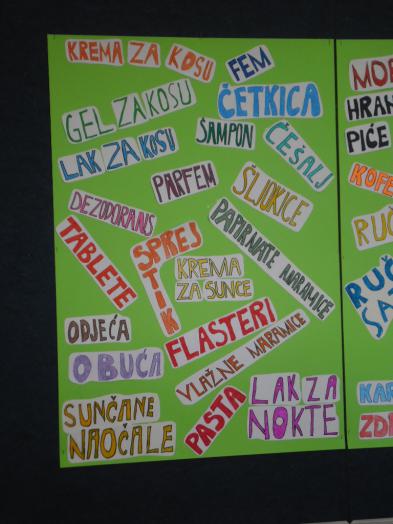 KREMA ZA KOSU
FEM
GEL ZA KOSU
ČETKICA
LAK ZA KOSU
ŠAMPON
ČEŠALJ
PARFEM
ŠLJOKICE
DEZODORANS
PAPIRNATE MARAMICE
TABLETE
SPREJ
TIK
KREMA
ZA SUNCE
ODJEĆA
FLASTERI
OBUĆA
VLAŽNE MARAMICE
SUNČANE
NAOČALE
PASTA
LAK ZA
NOKTE
HRAN
PIĆE
KOFE
RUČ
RUČ
SA
KAR